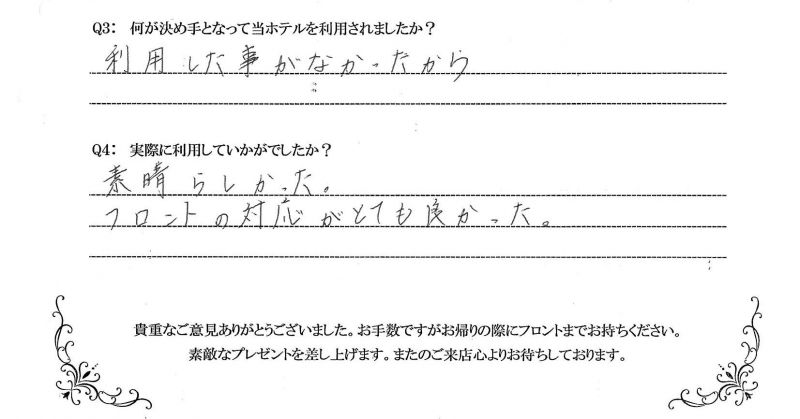 Q3： 何が決め手となって当ホテルを利用されましたか？
利用した事がなかったから
Q4： 実際に利用していかがでしたか？
素晴らしかった。
フロントの対応がとても良かった。
貴重なご意見ありがとうございました。お手数ですがお帰りの際にフロントまでお持ちください。
素敵なプレゼントを差し上げます。またのご来店心よりお待ちしております。